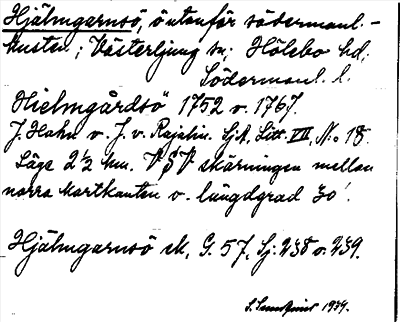 Hjälmgarnsö, ö utanför södermanl.-
kusten; Västerljung sn; Hölebo hd;
Södermanl. l.
"Hielmgårdsö" 1752 o. 1767.
J. Hahn o. J. v. Rajalin. SjA, Litt. VII, No 18.
Läge 2 1/2 km. VSV skärningen mellan
norra kartkanten o. längdgrad 30'.
Hjälmgarnsö ek, G. 57, Sj: 238 o. 239.
1934.